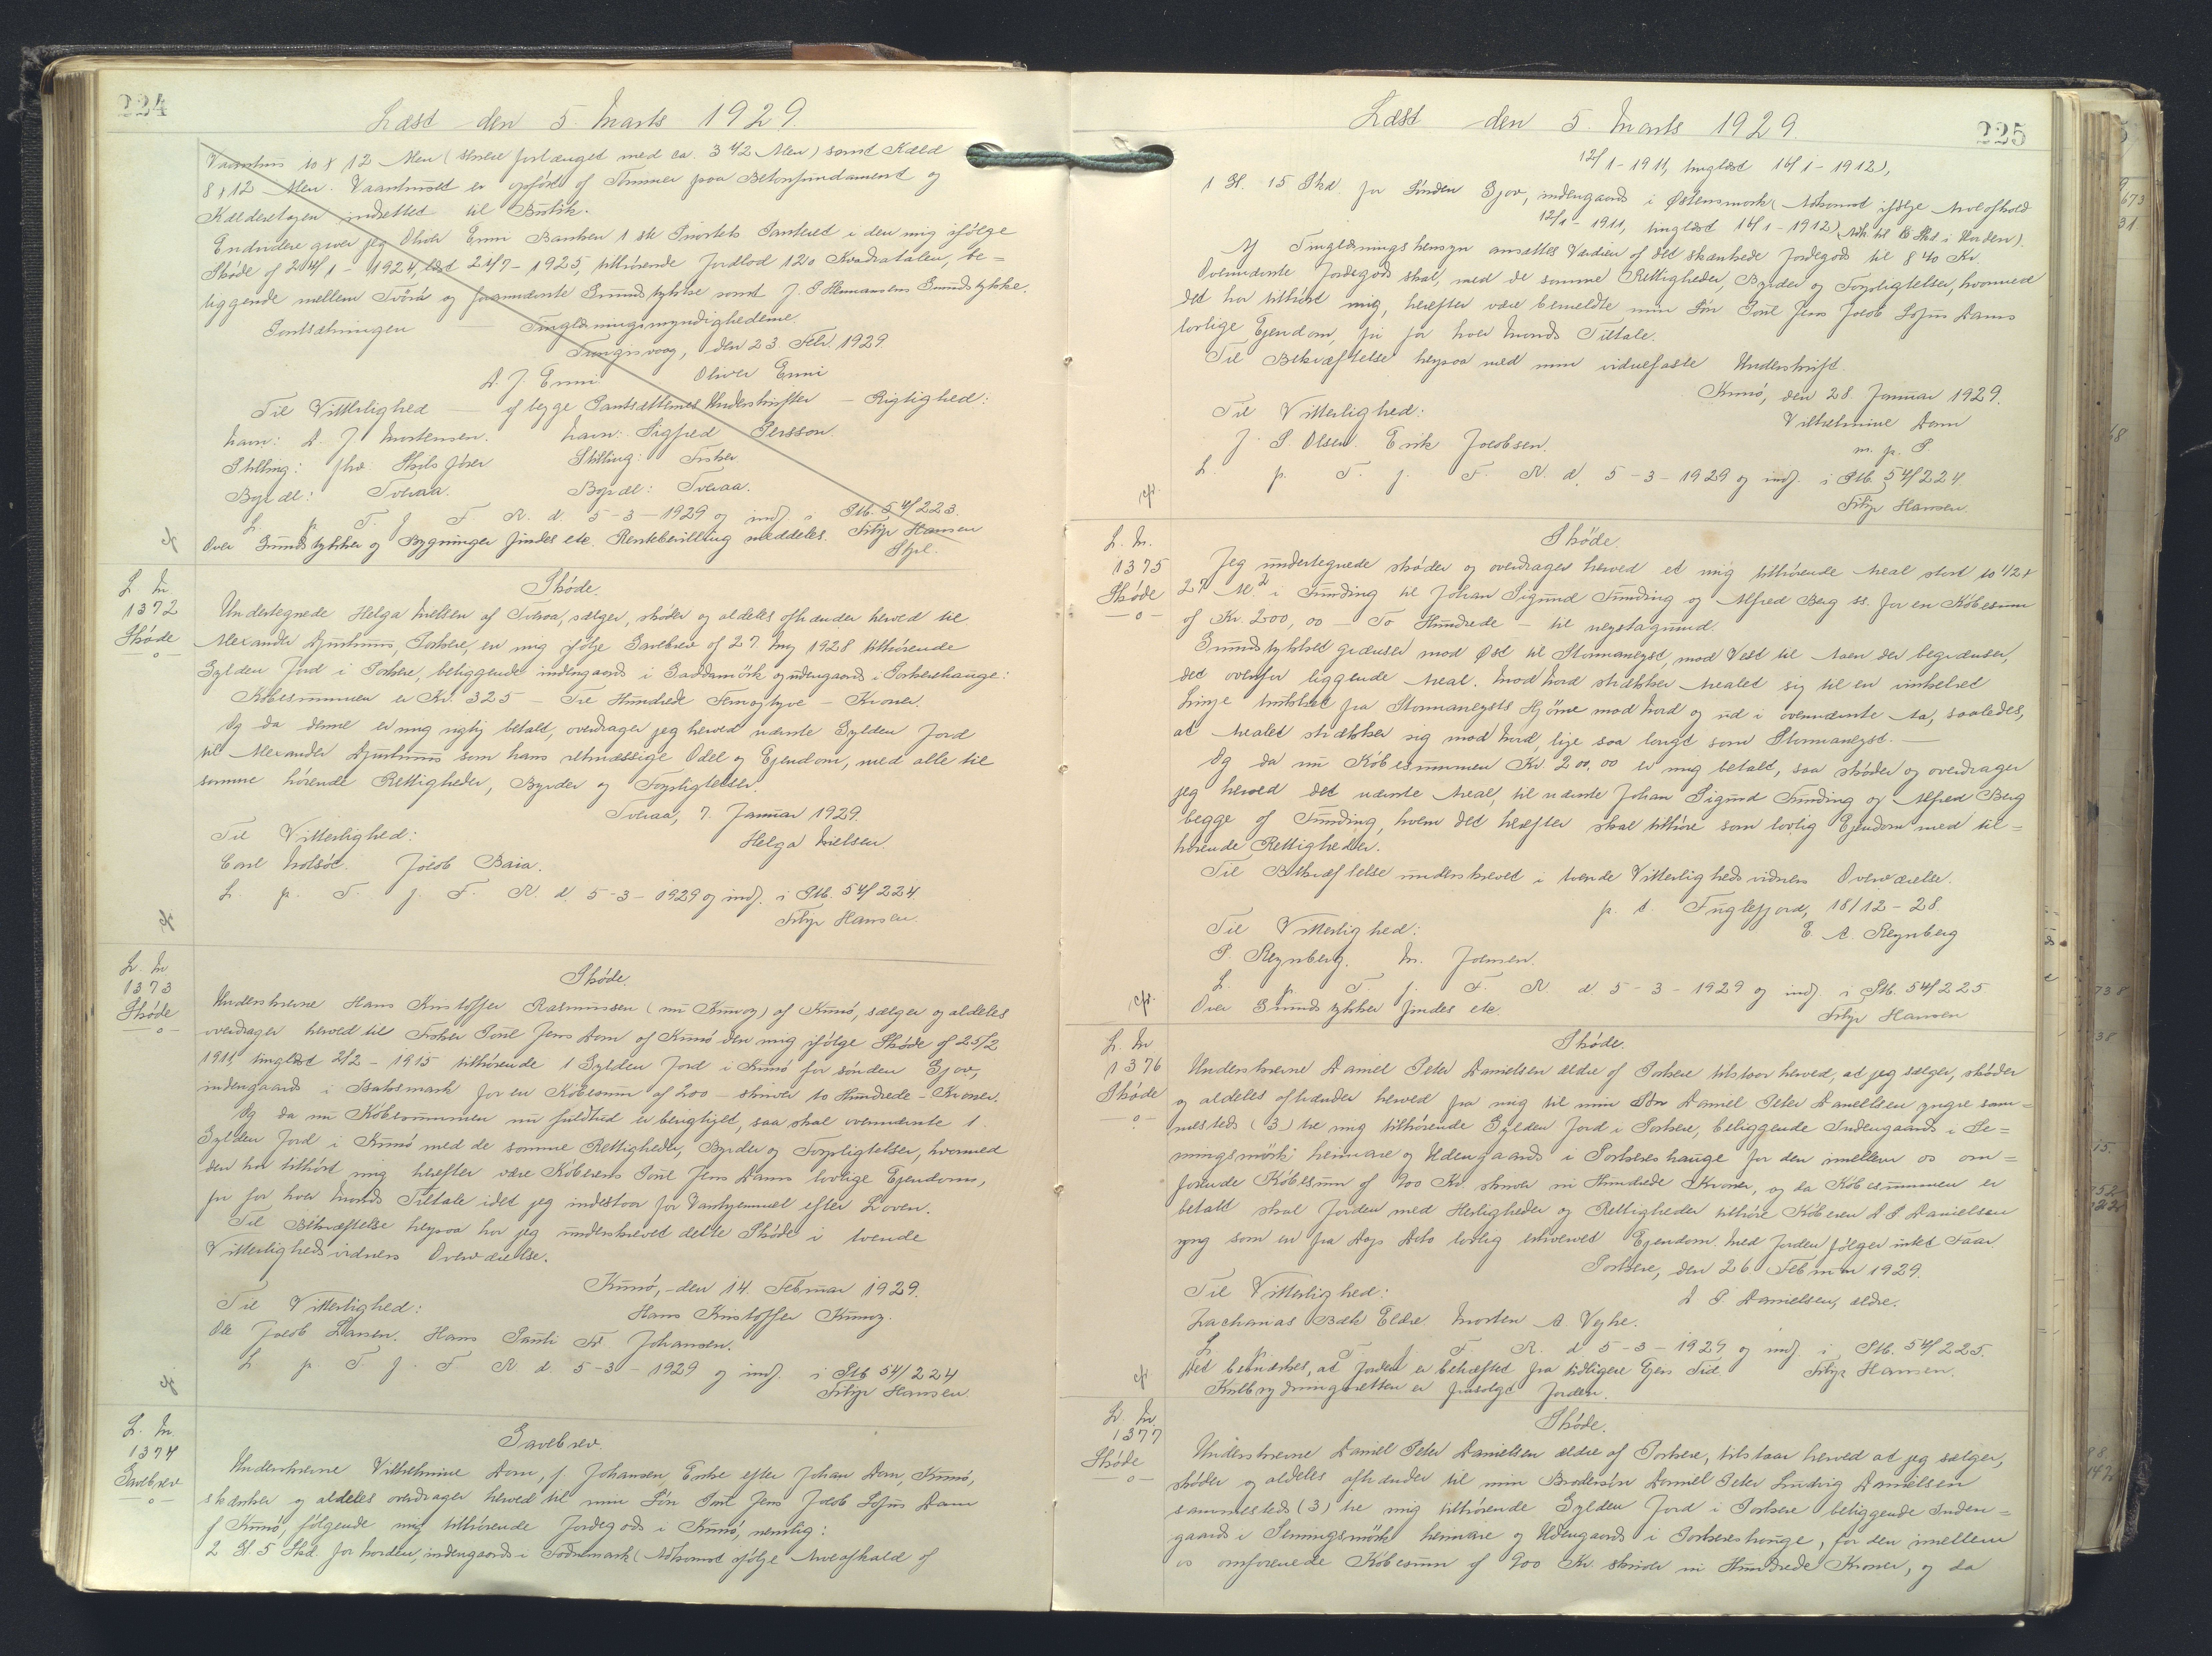 224
Læst den 5. Marts 1929
Vaanhus 10 x 12 Alen (senere forlænget med ca. 3 1/2 Alen) samt Kæld
8 x 12 Alen. Vaanhuset er opført af Tømmer paa Betonfundament og
Kælderetagen indrettet til Butik.
Endvidere giver jeg Oliver Enni Banken 1 ste Prioritets Panteret i den mig ifølge
Skøde af 24/1 - 1924, læst 21/7 - 1925, tilhørende Jordlod 120 Kvadratalen, be=
liggende mellem Tvörá og fornævnte Grundstykke samt J. P Hermansens Grundstykke.
Pantsætningen — Tinglæsningsmyndighederne.
Trongisvaag, den 23. Febr. 1929.
D. J. Enni. Oliver Enni
Til Vitterlighed — af begge Pantsætternes Underskrifter — Rigtighed:
Navn: D. J. Mortensen. Navn: Sigfred Persson.
Stilling: fhv. Skibsfører Stilling: Fisker
Bopæl: Tveraa. Bopæl: Tveraa.
L. p. T. f. F. R. d. 5-3-1929 og indf. i Ptb. 54/223.
Over Grundstykker og Bygninger findes etc. Rentebevilling meddeles. Filip Hansen
Stpl.
L. Nr.
1372
Skøde
—o—
Skøde.
Undertegnede Helga Nielsen af Tveraa, sælger, skøder og aldeles afhænder herved til
Alexander Djurhuus, Porkere, en mig ifølge Gavebrev af 27. Maj 1928 tilhørende
Gylden Jord i Porkere, beliggende indengaards i Gaddamörk og udengaards i Porkerehauge:
Købesummen er Kr. 325 — Tre Hundrede Femogtyve — Kroner.
Og da denne er mig rigtig betalt, overdrager jeg herved nævnte Gylden Jord
til Alexander Djurhuus som hans retmæssige Odel og Ejendom, med alle til
samme hørende Rettigheder, Byrder og Forpligtelser.
Tveraa, 7. Januar 1929.
Til Vitterlighed: Helga Nielsen.
Carl Holsöe. Jacob Baia.
L. p. T. f. F. R. d. 5-3-1929 og indf. i Ptb. 54/224.
Filip Hansen.
L. Nr
1373
Skøde
—o—
Skøde.
Underskrevne Hans Kristoffer Rasmussen (nu Kunoy) af Kunø, sælger og aldeles
overdrager herved til Fisker Poul Jens Dam af Kunø den mig ifølge Skøde af 25/2
1911, tinglæst 2/2 - 1915 tilhørende 1 Gylden Jord i Kunø for sønden Gjov,
indengaards i Bakasmark for en Købesum af 200 — skriver to Hundrede — Kroner.
Og da nu Købesummen nu fuldtud er berigtiget, saa skal ovennævnte 1
Gylden Jord i Kunø med de samme Rettigheder, Byrder og Forpligtelser, hvormed
den har tilhørt mig herefter være Køberens Poul Jens Dams lovlige Ejendom,
fri for hver Mands Tiltale idet jeg indestaar for Vanhjemmel efter Loven.
Til Bekræftelse heraf har jeg underskrevet dette Skøde i tvende
Vitterlighedsvidners Overværelse.
Kunø, den 14. Februar 1929.
Til Vitterlighed: Hans Kristoffer Kunoy.
Ole Jacob Larsen. Hans Pauli Fr. Johansen.
L. p. T. f. F. R. d. 5-3-1929 og indf. i Ptb 54/224
Filip Hansen.
L. Nr.
1374
Gavebrev
—o—
Gavebrev.
Underskrevne Vilhelmine Dam, f. Johansen, Enke efter Johan Dam, Kunø,
skænker og aldeles overdrager herved til min Søn Poul Jens Jacob Sofus Dam
af Kunø, følgende mig tilhørende Jordegods i Kunø, nemlig:
2 Gl. 5 Skd. for Norden, indengaards i Todnemark (Adkomst ifølge Arveafkald af
225
Læst den 5. Marts 1929.
12/1 - 1911, tinglæst 16/1 - 1912),
1 Gl. 15 Skd. for Sønden Gjov, indengaards i Østensmark (Adkomst ifølge Arveafkald
12/1 - 1911, tinglæst 16/1 - 1912)
Af Tinglæsningshensyn ansættes Værdien af det skænkede Jordegods til 840 Kr.
Ovennævnte Jordegods skal, med de samme Rettigheder, Byrder og Forpligtelser, hvormed
det har tilhørt mig, herefter være bemeldte min Søn Poul Jens Jacob Sofus Dams
lovlige Ejendom, fri for hver Mands Tiltale.
Til Bekræftelse herpaa med min vidnefaste Underskrift.
Kunø, den 28. Januar 1929.
Til Vitterlighed: Vilhelmine Dam
J. P. Olsen. Erik Jacobsen. m. p. P.
L. p. T. f. F. R. d. 5-3-1929 og indf. i Ptb. 54/224.
Filip Hansen.
L. Nr.
1375
Skøde
—o—
Skøde.
Jeg undertegnede skøder og overdrager herved et mig tilhørende Areal stort 10 1/2 x
27 Al.² i Funding til Johan Sigurd Funding og Alfred Berg ss. for en Købesum
af Kr. 200,00 — To Hundrede — til neystagrund.
Grundstykket grænser mod Øst til Stormaneyst, mod Vest til Aaen der begrænser,
det ovenfor liggende Areal. Mod Nord strækker Arealet sig til en vinkelret
Linje trukket fra Stormaneysts Hjørne mod Nord og ud i ovennævnte Aa, saaledes,
at Arealet strækker sig mod Nord, lige saa langt som Stormaneyst.—
Og da nu Købesummen Kr. 200,00 er mig betalt, saa skøder og overdrager
jeg herved det nævnte Areal, til nævnte Johan Sigurd Funding og Alfred Berg
begge af Funding, hvem det herefter skal tilhøre som lovlig Ejendom med til=
hørende Rettigheder.
Til Bekræftelse underskrevet i tvende Vitterlighedsvidners Overværelse.
p. t. Fuglefjord, 18/12 - 28.
Til Vitterlighed: E. A. Reynberg
P. Reynberg. M. Joensen.
L. p. T. f. F. R. d. 5-3-1929 og indf. i Ptb. 54/225
Over Grundstykker findes etc. Filip Hansen
L. Nr
1376
Skøde
—o—
Skøde.
Underskrevne Daniel Peter Danielsen ældre af Porkere tilstaar herved, at jeg sælger, skøder
og aldeles afhænder herved fra mig til min Søn Daniel Peter Danielsen yngre sam=
mesteds (3) tre mig tilhørende Gylden Jord i Porkere, beliggende Indengaards i Se=
mingsmörk heimare og Udengaards i Porkereshauge for den imellem os om=
forenede Købesum af 900 Kr. skriver ni Hundrede Kroner, og da Købesummen er
betalt skal Jorden med Herligheder og Rettigheder tilhøre Køberen D. P. Danielsen
yng som en fra Dags Dato lovlig erhvervet Ejendom. Med Jorden følger intet Faar.
Porkere, den 26 Februar 1929.
Til Vitterlighed: D. P. Danielsen, ældre.
Zacharias Bæk Eldre Morten A. Vejhe.
L. p. T. f. F. R. d. 5-3-1929 og indf. i Ptb. 54/225.
Det bemærkes, at Jorden er behæftet fra tidligere Ejers Tid. Filip Hansen.
Kulbrydningsretten er frasolgt Jorden.
L. Nr.
1377
Skøde
—o—
Skøde.
Underskrevne Daniel Peter Danielsen ældre af Porkere, tilstaar herved at jeg sælger,
skøder og aldeles afhænder til min Brodersøn Daniel Peter Ludvig Danielsen
sammesteds (3) tre mig tilhørende Gylden Jord i Porkere beliggende Inden=
gaards i Semingsmörk heimare og Udengaards i Porkereshauge, for den imellem
os omforenede Købesum af 900 Kr. skriver ni Hundrede Kroner, og da